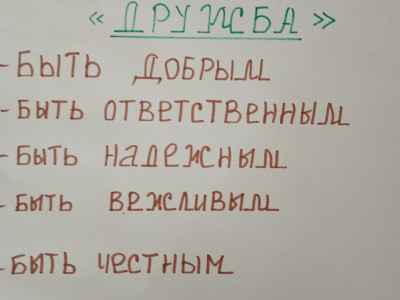 « ДРУЖБА »
- БЫТЬ ДОБРЫМ
- БЫТЬ ОТВЕТСТВЕННЫМ
- БЫТЬ НАДЕЖНЫМ
- БЫТЬ ВЕЖЛИВЫМ
- БЫТЬ ЧЕСТНЫМ